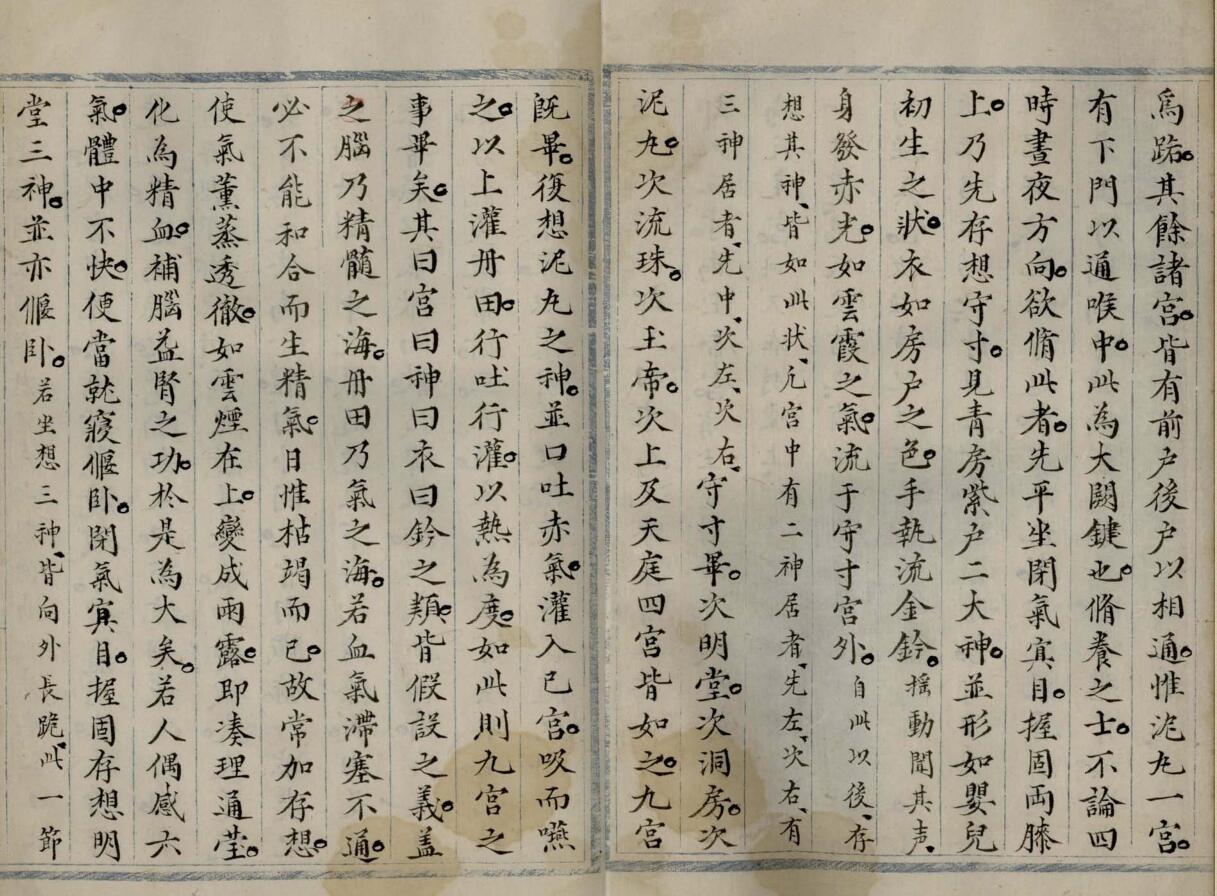 為路。其餘諸宮。皆有前户後户以相通。惟泥丸一宮。
有下門以通喉中。此為大闗鍵也。脩養之士。不論四
時晝夜方向。欲脩此者。先平坐閉氣㝠目。握固両膝
上。乃先存想守寸。見青房紫户二大神。並形如嬰兒
初生之狀。衣如房户之色。手執流金鈴。揺動聞其声、
身發赤光。如雲霞之氣。流于守寸宮外。自此以後、存
想其神、皆如此状、凢宮中有二神居者、先左、次右、有
三神居者、先中、次左、次右、守寸畢。次明堂。次洞房。次
泥丸。次流珠。次玉帝。次上及天庭四宮皆如之。九宮
既畢。復想泥丸之神。並口吐赤氣。灌入已宮。吸而嚥
之。以上灌丹田。行吐行灌。以熱為度。如此則九宮之
事畢矣。其曰宮曰神曰衣曰鈴之類。皆假設之義。盖
之腦乃精髓之海。丹田乃氣之海。若血氣滯塞不通。
必不能和合而生精氣。日惟枯竭而已。故常加存想。
使氣薰蒸透徹。如雲煙在上。變成雨露。即凑理通瑩。
化為精血。補腦益腎之功。於是為大矣。若人偶感六
氣。體中不快。便當就寢偃卧。閉氣㝠目。握固存想明
堂三神。並亦偃卧。若坐想三神、皆向外長跪、此一節